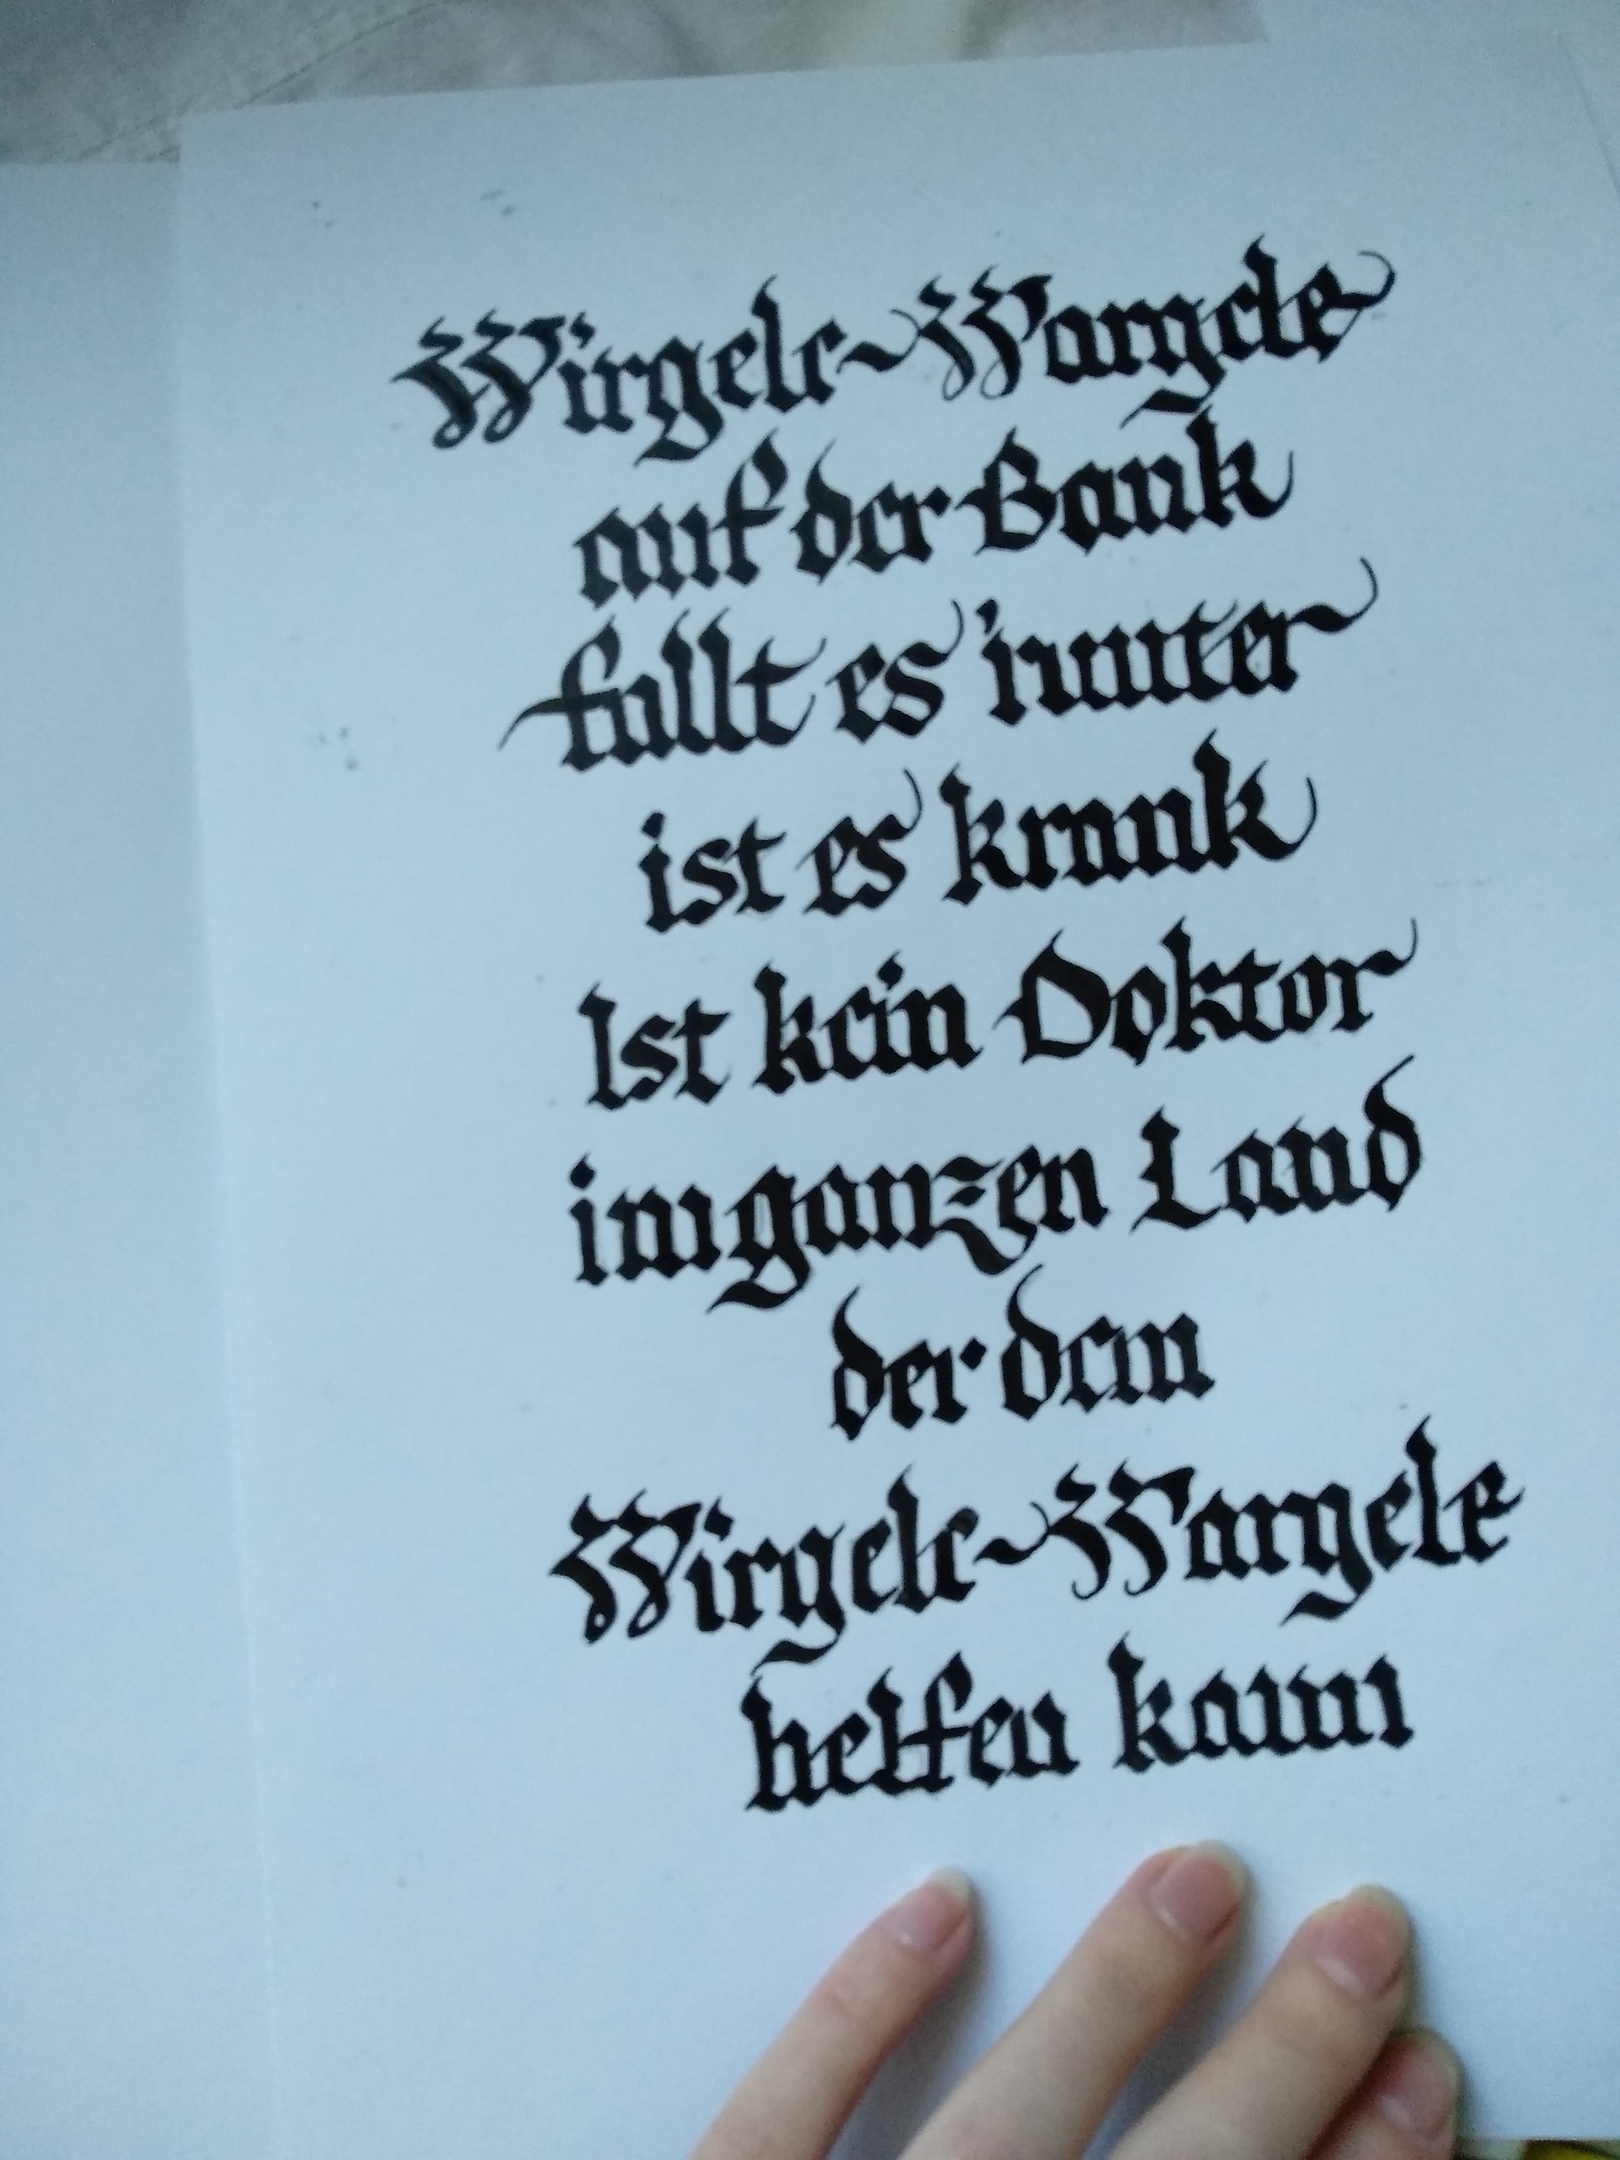 Wirgele~Wargele
auf der Bank
fallt es 'runter
ist es krank
Ist kein Doktor
im ganzen Land
der dem
Wirgele~Wargele
helfen kann